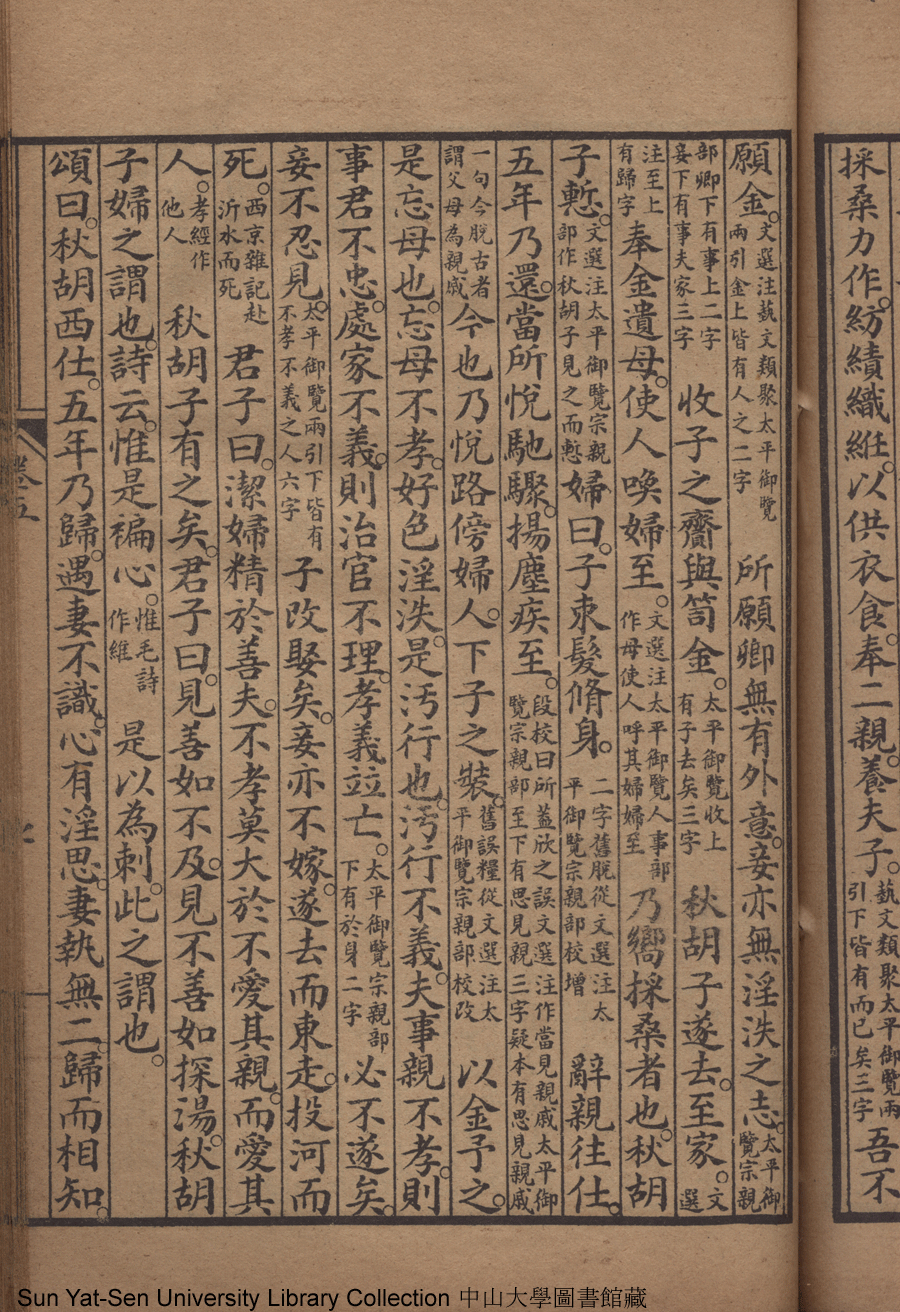 採桑力作。紡績織紝。以供衣食。奉二親。養夫子。藝文類聚太平御覽兩引下皆有而已矣三字吾不
願金。文選注藝文類聚太平御覽兩引金上皆有人之二字所願卿無有外意。妾亦無淫泆之志。太平御覽宗親
部卿下有事上二字妾下有事夫家三字收子之齎與笥金。太平御覽收上有子去矣三字秋胡子遂去。至家。文選
注至上有歸字奉金遺母。使人喚婦至。文選注太平御覽人事部作母使人呼其婦婦至乃嚮採桑者也。秋胡
子慙。文選注太平御覽宗親部作秋胡子見之而慙婦曰。子束髮脩身。二字舊脫從文選注太平御覽宗親部校增辭親往仕。
五年乃還。當所悅馳驟。揚塵疾至。段校曰所蓋欣之誤文選注作當見親戚太平御覽宗親部至下有思見親三字疑本有思見親戚
一句今脫古者謂父母為親戚今也乃悅路傍婦人。下子之裝。舊誤糧從文選注太平御覽宗親部校改以金予之。
是忘母也。忘母不孝。好色淫泆。是污行也。污行不義。夫事親不孝。則
事君不忠。處家不義。則治官不理。孝義竝亡。太平御覽宗親部下有於身二字必不遂矣。
妾不忍見。太平御覽兩引下皆有不孝不義之人六字子改娶矣。妾亦不嫁。遂去而東走。投河而
死。西京雜記赴沂水而死君子曰。潔婦精於善夫。不孝莫大於不愛其親。而愛其
人。孝經作他人秋胡子有之矣。君子曰。見善如不及。見不善如探湯。秋胡
子婦之謂也。詩云。惟是褊心。惟毛詩作維是以為刺。此之謂也。
頌曰。秋胡西仕。五年乃歸。遇妻不識。心有淫思。妻執無二歸而相知。
卷五
Sun Yat-Sen University Library Collection 中山大學圖書館藏